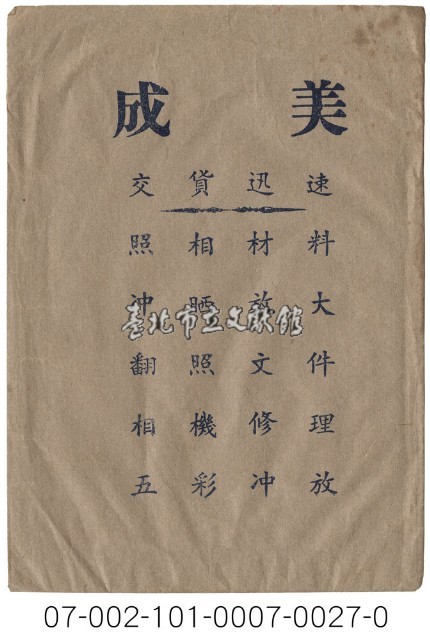 成美
交貨迅速
照相材料
冲晒放大
臺北市立文獻館
翻照文件
相機修理
五彩冲放
07-002-101-0007-0027-0